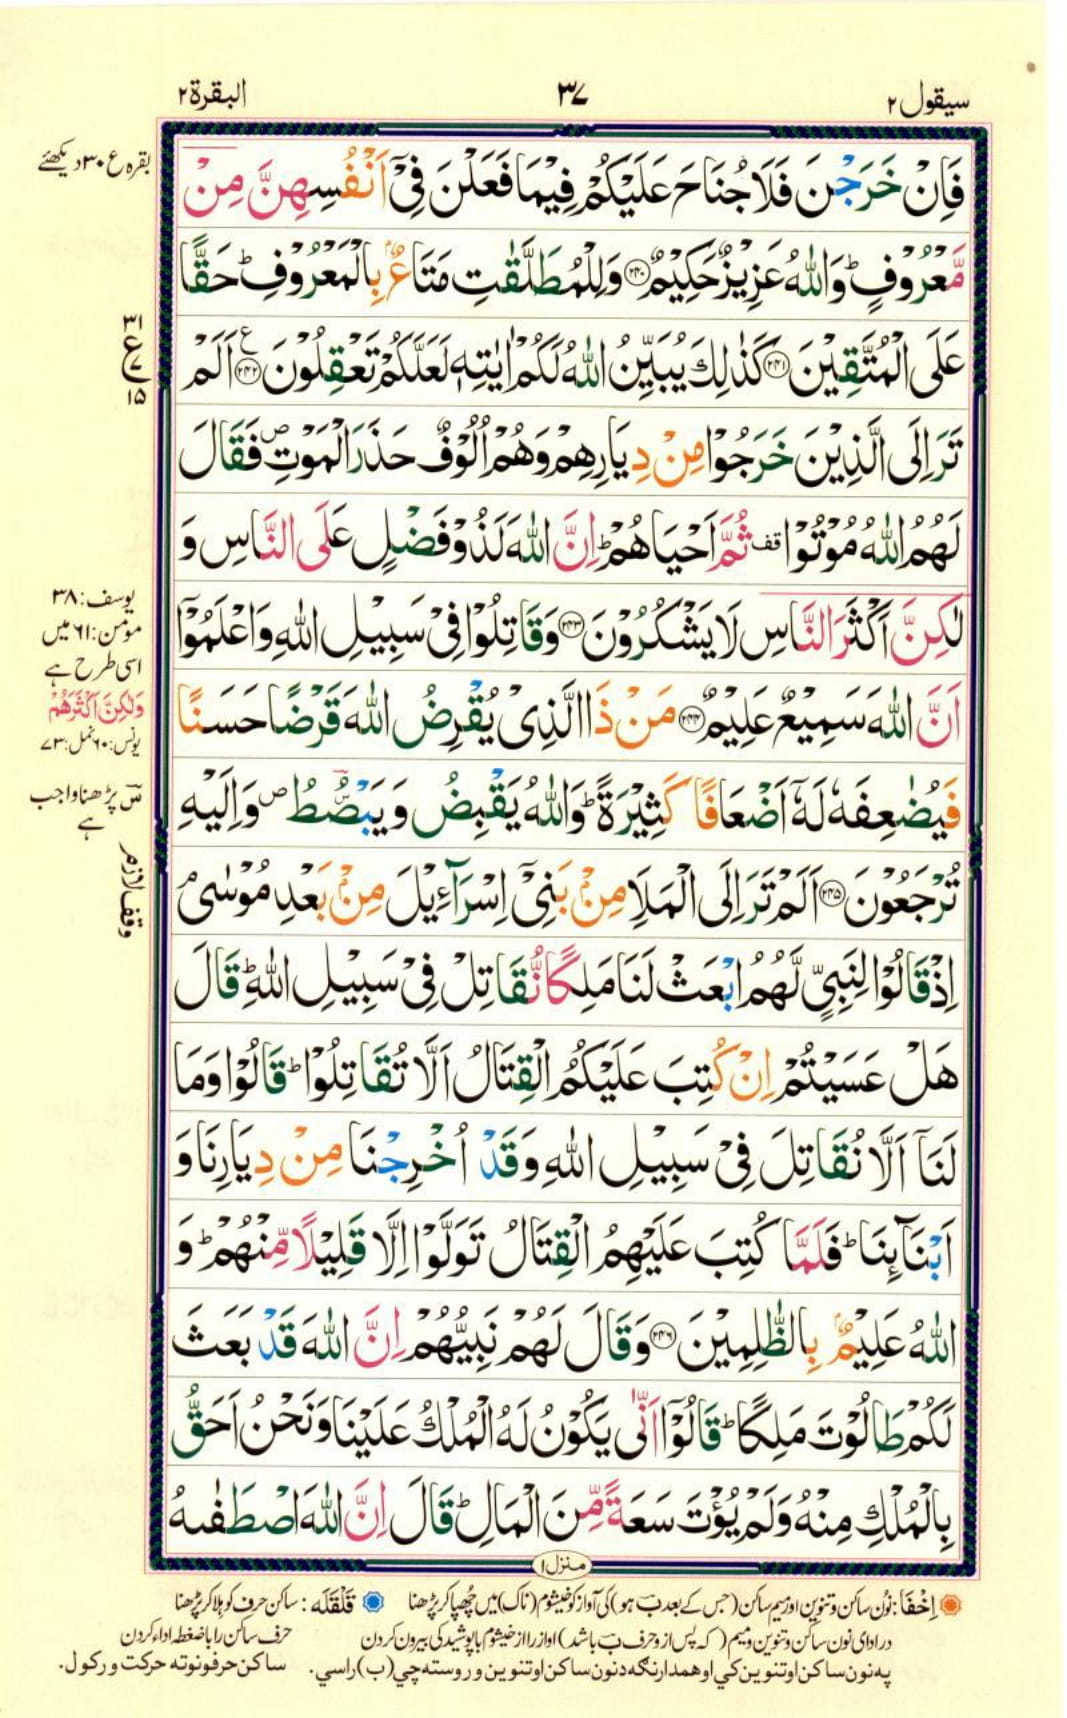 سیقول ۲
۳۷
البقرة ۲
فَاِنْ خَرَجْنَ فَلَا جُنَاحَ عَلَيْكُمْ فِيْمَا فَعَلْنَ فِيْٓ اَنْفُسِهِنَّ مِنْ
مَّعْرُوْفٍ ؕ وَاللّٰهُ عَزِيْزٌ حَكِيْمٌ ﴿۲۴۰﴾ وَلِلْمُطَلَّقٰتِ مَتَاعٌۢ بِالْمَعْرُوْفِ ؕ حَقًّا
عَلَى الْمُتَّقِيْنَ ﴿۲۴۱﴾ كَذٰلِكَ يُبَيِّنُ اللّٰهُ لَكُمْ اٰيٰتِهٖ لَعَلَّكُمْ تَعْقِلُوْنَ ﴿۲۴۲﴾ ع اَلَمْ
تَرَ اِلَى الَّذِيْنَ خَرَجُوْا مِنْ دِيَارِهِمْ وَهُمْ اُلُوْفٌ حَذَرَ الْمَوْتِ ص فَقَالَ
لَهُمُ اللّٰهُ مُوْتُوْا قف ثُمَّ اَحْيَاهُمْ ؕ اِنَّ اللّٰهَ لَذُوْ فَضْلٍ عَلَى النَّاسِ وَ
لٰكِنَّ اَكْثَرَ النَّاسِ لَا يَشْكُرُوْنَ ﴿۲۴۳﴾ وَقَاتِلُوْا فِيْ سَبِيْلِ اللّٰهِ وَاعْلَمُوْٓا
اَنَّ اللّٰهَ سَمِيْعٌ عَلِيْمٌ ﴿۲۴۴﴾ مَنْ ذَا الَّذِيْ يُقْرِضُ اللّٰهَ قَرْضًا حَسَنًا
فَيُضٰعِفَهٗ لَهٗٓ اَضْعَافًا كَثِيْرَةً ؕ وَاللّٰهُ يَقْبِضُ وَيَبْصُۜطُ ص وَاِلَيْهِ
تُرْجَعُوْنَ ﴿۲۴۵﴾ اَلَمْ تَرَ اِلَى الْمَلَاِ مِنْۢ بَنِيْٓ اِسْرَآءِيْلَ مِنْۢ بَعْدِ مُوْسٰى ۘ
اِذْ قَالُوْا لِنَبِيٍّ لَّهُمُ ابْعَثْ لَنَا مَلِكًا نُّقَاتِلْ فِيْ سَبِيْلِ اللّٰهِ ؕ قَالَ
هَلْ عَسَيْتُمْ اِنْ كُتِبَ عَلَيْكُمُ الْقِتَالُ اَلَّا تُقَاتِلُوْا ؕ قَالُوْا وَمَا
لَنَآ اَلَّا نُقَاتِلَ فِيْ سَبِيْلِ اللّٰهِ وَقَدْ اُخْرِجْنَا مِنْ دِيَارِنَا وَ
اَبْنَآئِنَا ؕ فَلَمَّا كُتِبَ عَلَيْهِمُ الْقِتَالُ تَوَلَّوْا اِلَّا قَلِيْلًا مِّنْهُمْ ؕ وَ
اللّٰهُ عَلِيْمٌۢ بِالظّٰلِمِيْنَ ﴿۲۴۶﴾ وَقَالَ لَهُمْ نَبِيُّهُمْ اِنَّ اللّٰهَ قَدْ بَعَثَ
لَكُمْ طَالُوْتَ مَلِكًا ؕ قَالُوْٓا اَنّٰى يَكُوْنُ لَهُ الْمُلْكُ عَلَيْنَا وَنَحْنُ اَحَقُّ
بِالْمُلْكِ مِنْهُ وَلَمْ يُؤْتَ سَعَةً مِّنَ الْمَالِ ؕ قَالَ اِنَّ اللّٰهَ اصْطَفٰىهُ
بقرہ ع ۳۰ دیکھئے
۳۱
ع
۷
۱۵
یوسف: ۳۸
مؤمن: ۶۱ میں
اسی طرح ہے
وَلٰكِنَّ اَكْثَرَهُمْ
یونس: ۶۰ نمل: ۷۳
س پڑھنا واجب
ہے
وقف لازم
منزل ۱
اِخْفَا: نون ساکن و تنوین اور میم ساکن (جس کے بعد ب ہو) کی آواز کو خیشوم (ناک) میں چھپا کر پڑھنا
قَلْقَلَه: ساکن حرف کو ہلا کر پڑھنا
در ادای نون ساکن و تنوین و میم (که پس از و حرف ب باشد) آواز را از خیشوم با پوشیدگی بیرون کردن
حرف ساکن را با ضغطه اداء کردن
په نون ساکن او تنوین کي او همدارنګه د نون ساکن او تنوین و روسته چي (ب) راسي.
ساکن حرفونو ته حرکت ورکول.